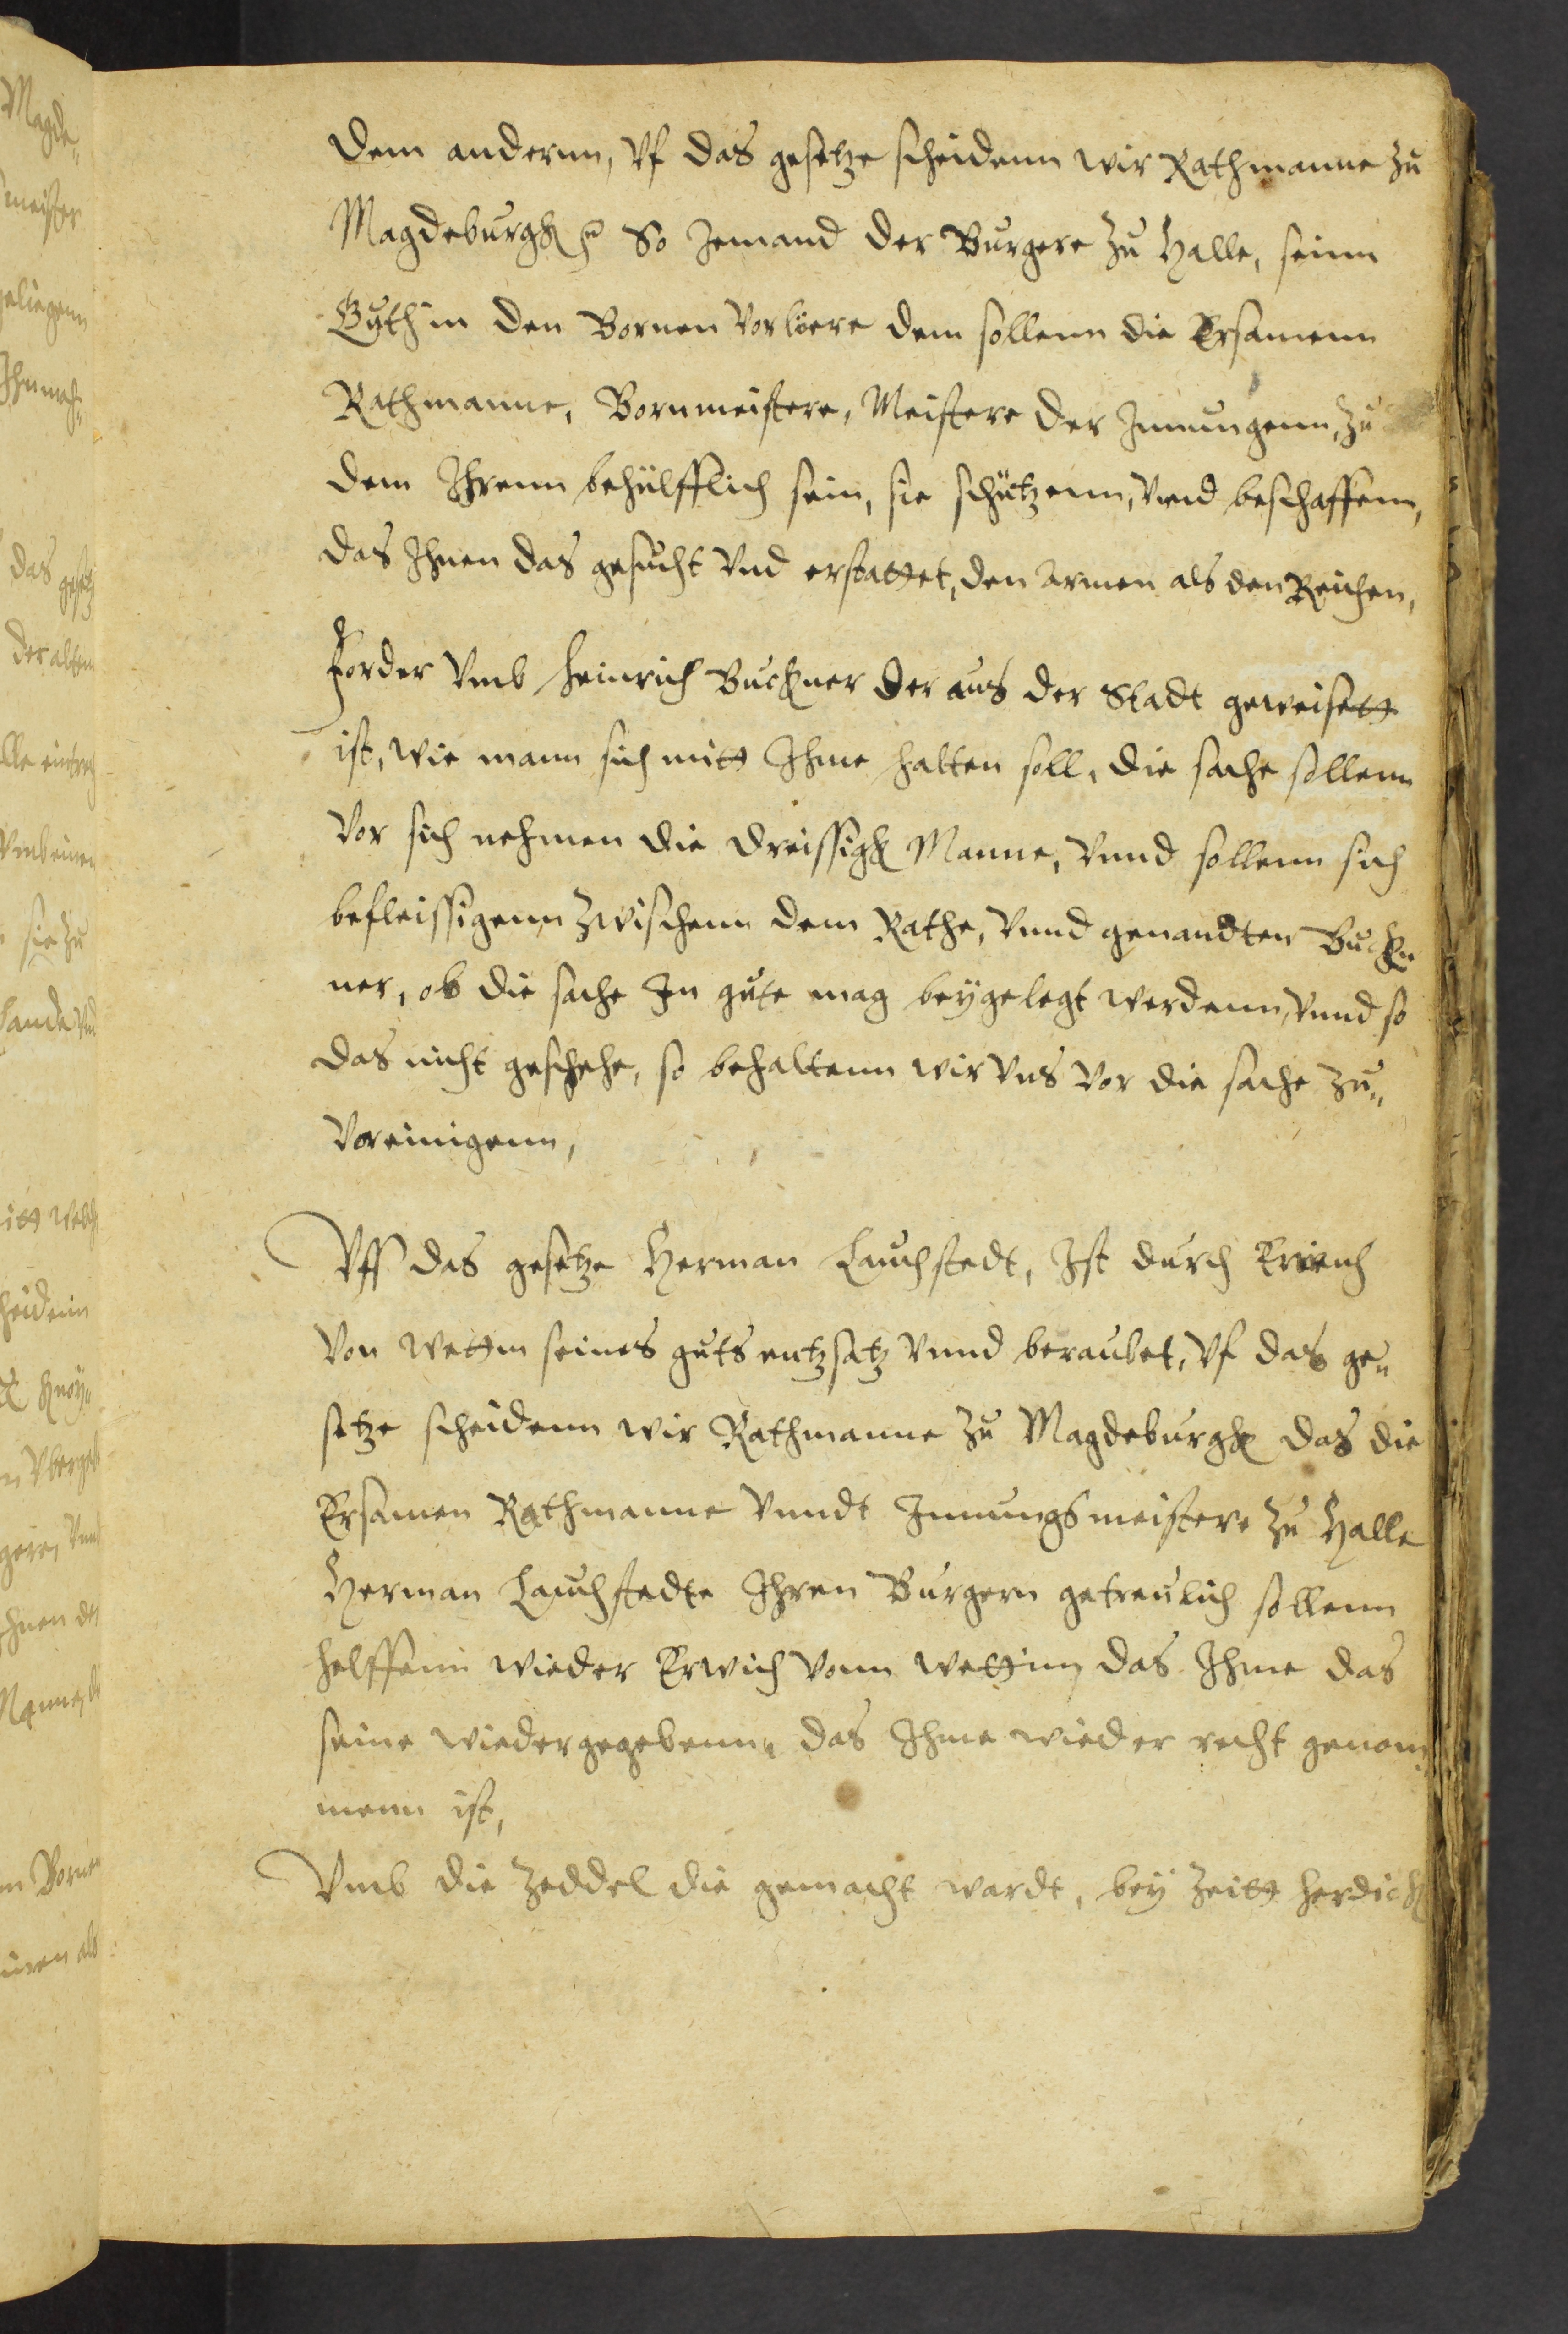 dem andernn, Vf das gesetze scheidenn wir Rathmanne zu
Magdeburgk So Jemand der Burgere zu Halle, seinn
Guth in den Bornen Vorlöere dem sollenn die Ersamenn
Rathmanne, Bornmeistere, Meistere der Innungenn, zu
dem Ihrenn behülfflich sein, sie schützenn, Vnd beschaffenn,
das Ihnen das gesucht Vnd erstattet, den Armen als den Reichen,
Forder Vmb Heinrich Buchner der aus der Stadt geweisett
ist, wie mann sich mitt Ihme halten soll, die sache sollenn
Vor sich nehmen die dreissigk Manne, Vnnd sollenn sich
befleissigenn zwischenn dem Rathe, Vnnd genandten Buch„
ner, ob die sache In gute mag beÿgelegt werdenn, Vnnd so
das nicht geschehe, so behaltenn wir Vns Vor die sache zu„
Voreinigenn,
Vff das gesetze Herman Lauchstedt, Ist durch
Von Wettin seines guts entzsatz Vnnd beraubet, Vf das ge„
setze scheidenn wir Rathmanne zu Magdeburgk das die
Ersamen Rathmanne Vnndt Innungsmeistere zu Halle
Herman Lauchstedte Ihren Burgern getreulich sollenn
helffenn wieder Erwich Vonn Wettinn das Ihme das
seine wiedergegebenn, das Ihme wieder recht genom„
menn ist,
Vmb die Zeddel die gemacht wardt, beÿ Zeitt